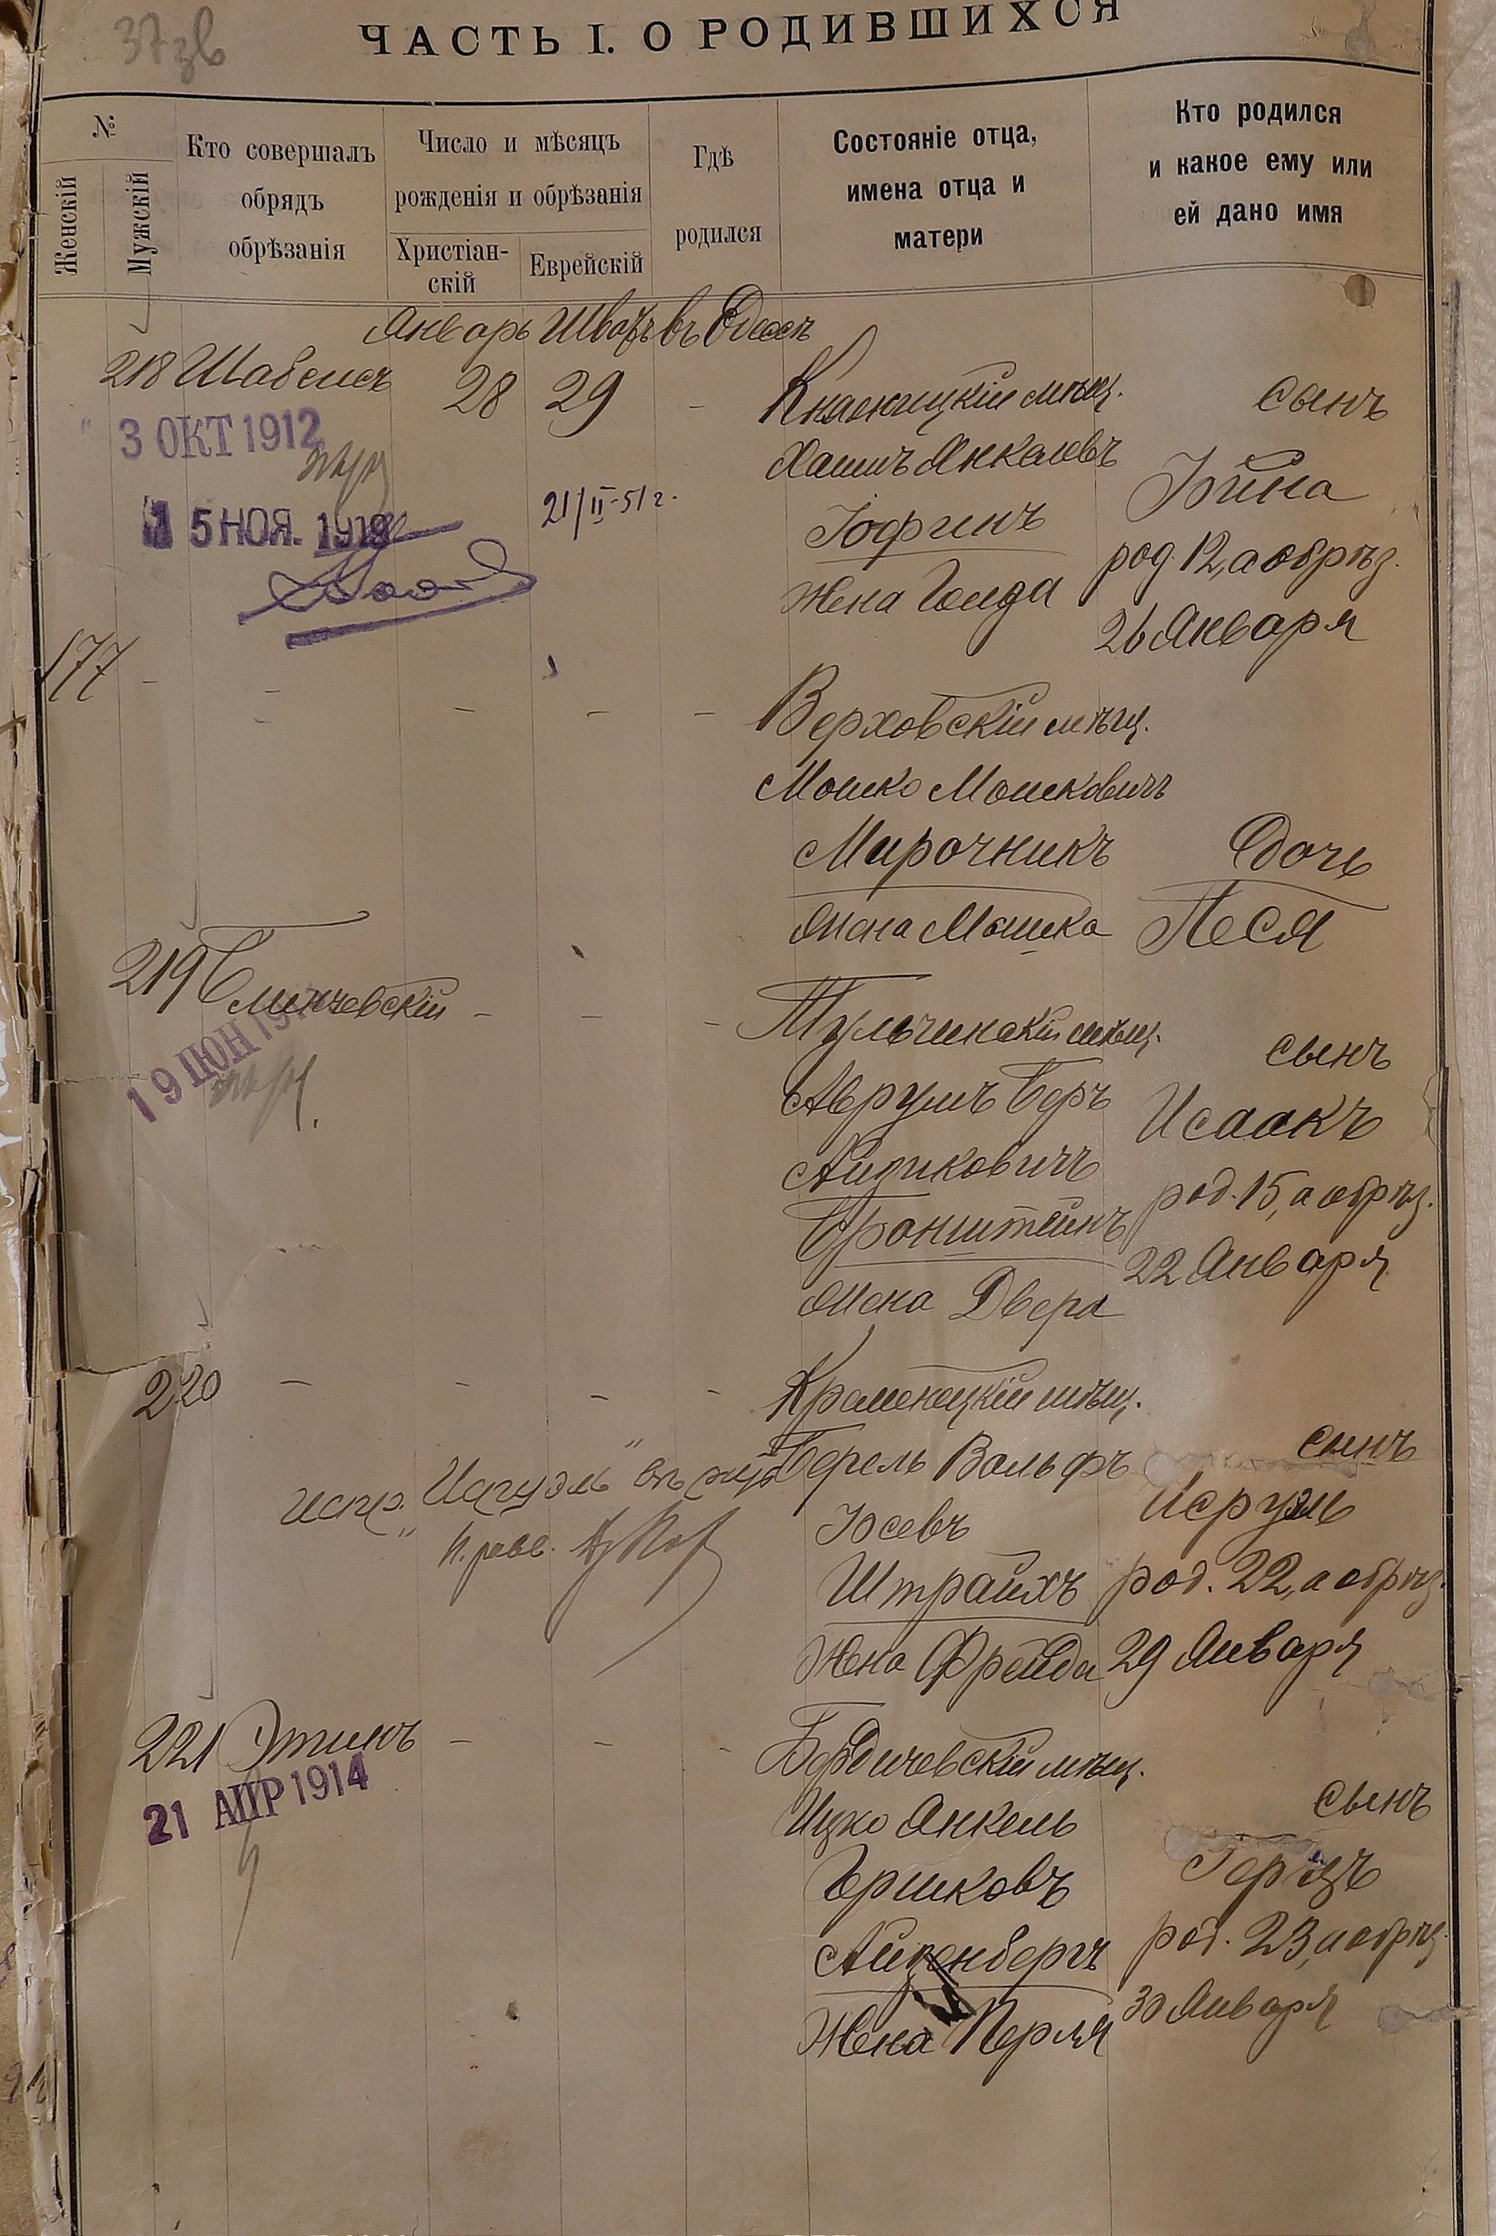 37зв
ЧАСТЬ I. О РОДИВШИХСЯ
№
Женскій
Мужскій
Кто совершалъ
обрядъ
обрѣзанія
Число и мѣсяцъ
рожденія и обрѣзанія
Христіан-
скій
Еврейскій
Гдѣ
родился
Состояніе отца,
имена отца и
матери
Кто родился
и какое ему или
ей дано имя
Январь Шватъ въ Одессѣ
218 Шабсисъ 28 29 - Княжицкій мѣщ.
сынъ
3 ОКТ 1912
Хаимъ Янкелевъ
Іойна
15 НОЯ. 1919
21/II-51 г.
Іофинъ
род. 12, а обрѣз.
жена Голда
26 Января
177 - - - - - Верховскій мѣщ.
Мошко Мошковичъ
Мирочникъ
дочь
жена Мошка
Песя
219 Слинчевскій - - - Тульчинскій мѣщ.
сынъ
19 ІЮН 191
Аврумъ Беръ
Исаакъ
Айзиковичъ
род. 15, а обрѣз.
Бронштейнъ
22 Января
жена Двера
220 - - - - Кременецкій мѣщ.
Берель Вольфъ
сынъ
испр. "Исруэль"
Іосевъ
Исруэль
Штрайхъ
род. 22, а обрѣз.
жена Фрейда
29 Января
221 Этинъ - - - Бердичевскій мѣщ.
21 АПР 1914
Ицко Янкель
сынъ
Гершковъ
Герцъ
Айзенбергъ
род. 23, а обрѣз.
жена Перля
30 Января